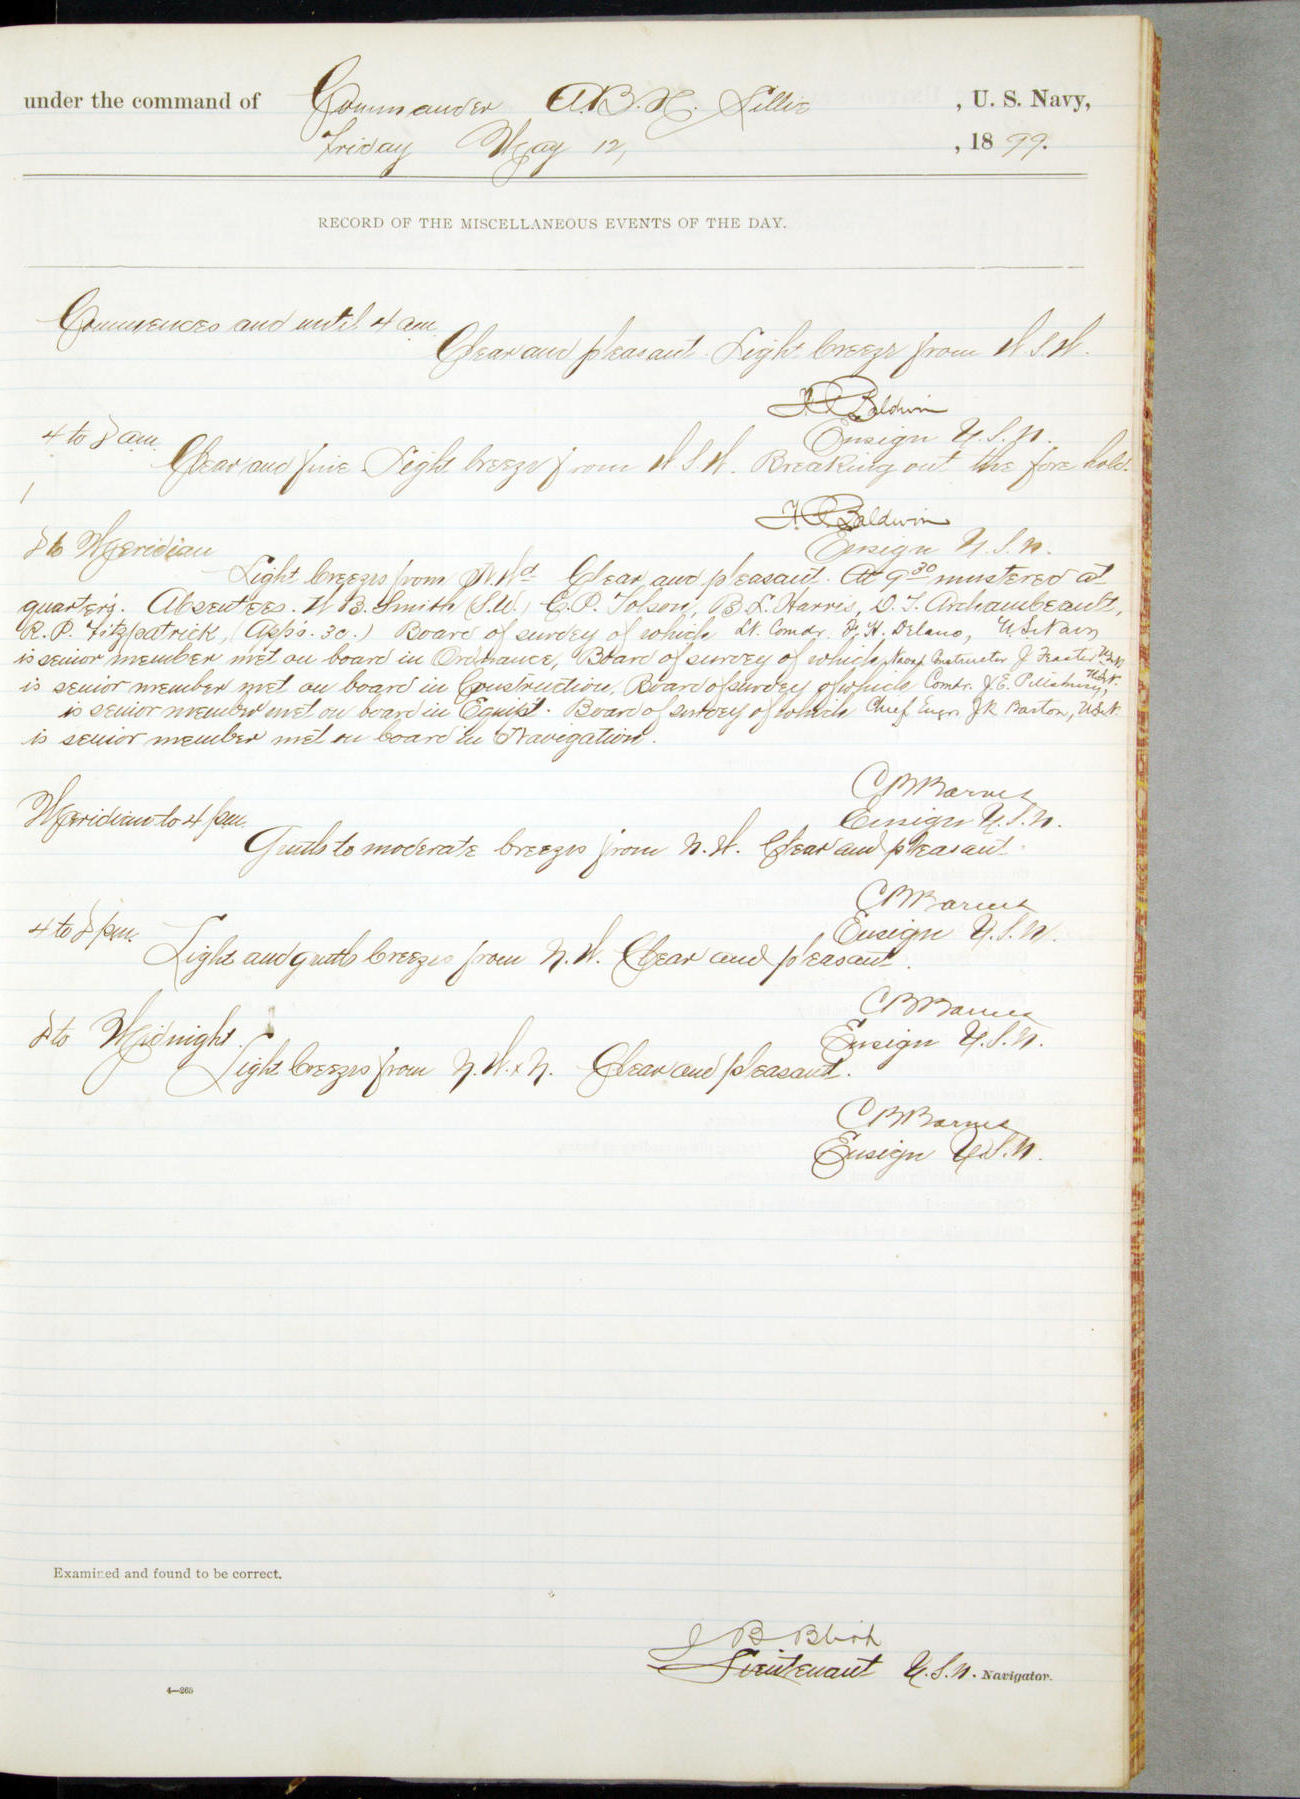 under the command of Commander A.B.H. Lillie , U. S. Navy,
Friday May 12, , 1899.
RECORD OF THE MISCELLANEOUS EVENTS OF THE DAY.
Commences and until 4 am.
Clear and pleasant. Light breeze from W.S.W.
Baldwin
Ensign U.S.N.
4 to 8 am.
Clear and fine. Light breeze from W.S.W. Breaking out the fore hold.
Baldwin
Ensign U.S.N.
8 to Meridian
Light breezes from Clear and pleasant. At 9 30 mustered at
quarters. Absentees. W.B. Smith (S.W.) C.P. Tolson, B.L. Harris, D.T. Archambeault,
R.P. Fitzpatrick, (App's. 3c.) Board of survey of which Lt. Comdr. F.H. Delano, U.S. Navy
is senior member met on board in Ordnance, Board of survey of which Naval Constructor J. Feaster U.S.N.
is senior member met on board in Construction, Board of survey of which Comdr. J.E. Pillsbury, U.S.N.
is senior member met on board in Equipt. Board of survey of which Chief Engr. J.K. Barton, U.S.N.
is senior member met on board in Navigation.
C B Barnes
Ensign U.S.N.
Meridian to 4 pm.
Gentle to moderate breezes from N.W. Clear and pleasant.
C B Barnes
Ensign U.S.N.
4 to 8 pm.
Light and gentle breezes from N.W. Clear and pleasant.
C B Barnes
Ensign U.S.N.
8 to Midnight.
Light breezes from N.W. x N. Clear and pleasant.
C B Barnes
Ensign U.S.N.
Examined and found to be correct.
J B Blish
Lieutenant U.S.N. Navigator.
4—265